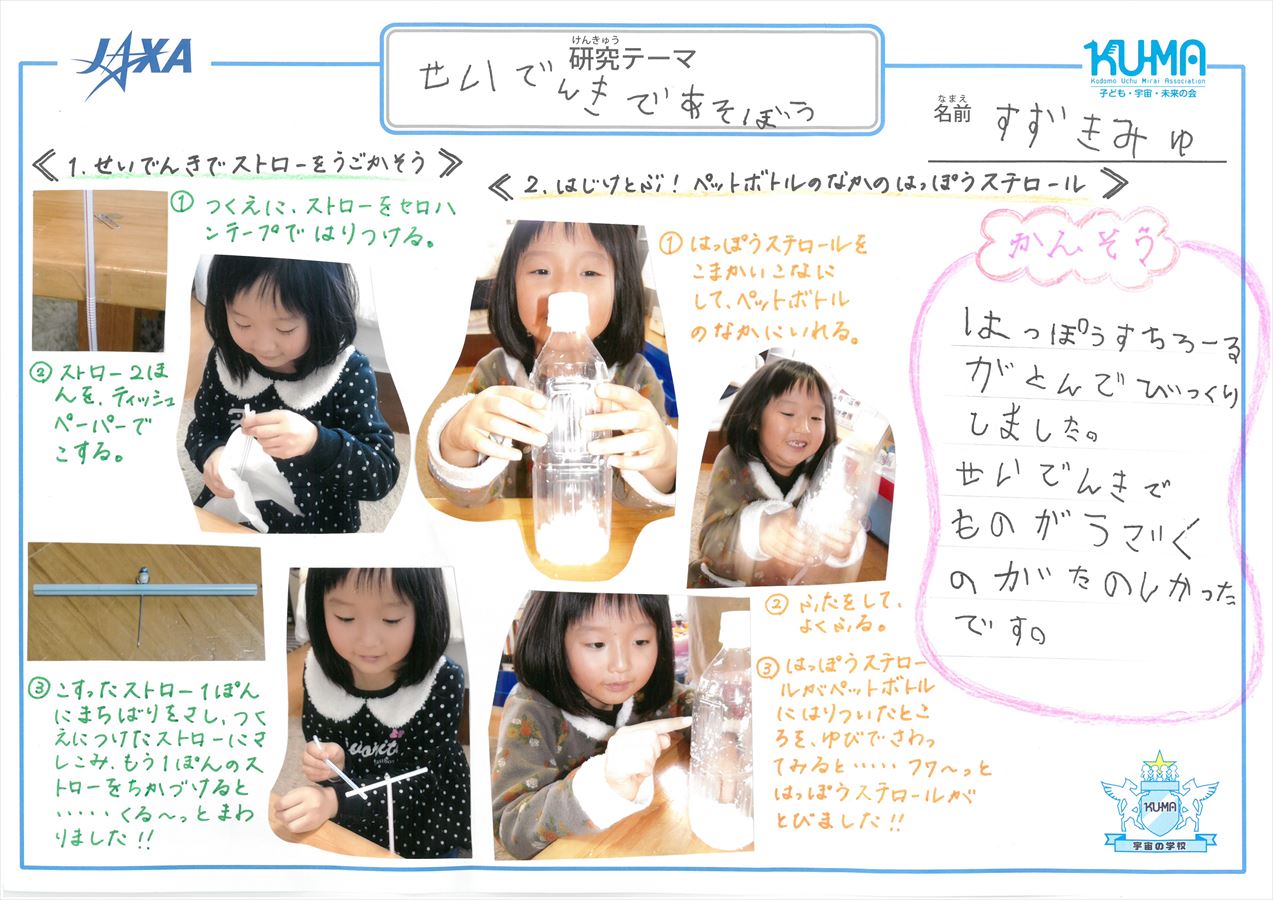 JAXA
けんきゅう
研究テーマ
せいでんきであそぼう
KU-MA
Kodomo Uchu Mirai Association
子ども・宇宙・未来の会
なまえ
名前
すずきみゆ
≪1.せいでんきでストローをうごかそう≫
① つくえに、ストローをセロハ
ンテープではりつける。
② ストロー2ほ
んを、ティッシュ
ペーパーで
こする。
③ こすったストロー1ぽん
にまちばりをさし、つく
えにつけたストローにさ
しこみ、もう1ぽんのス
トローをちかづけると
・・・・・くる～っとまわ
りました!!
≪2.はじけとぶ!ペットボトルのなかのはっぽうスチロール≫
① はっぽうスチロールを
こまかいこなに
して、ペットボトル
のなかにいれる。
② ふたをして、
よくふる。
③ はっぽうスチロー
ルがペットボトル
にはりついたとこ
ろを、ゆびでさわっ
てみると・・・・・フワ～っと
はっぽうスチロールが
とびました!!
かんそう
はっぽうすちろーる
がとんでびっくり
しました。
せいでんきで
ものがうごく
のがたのしかった
です。
KU-MA
宇宙の学校